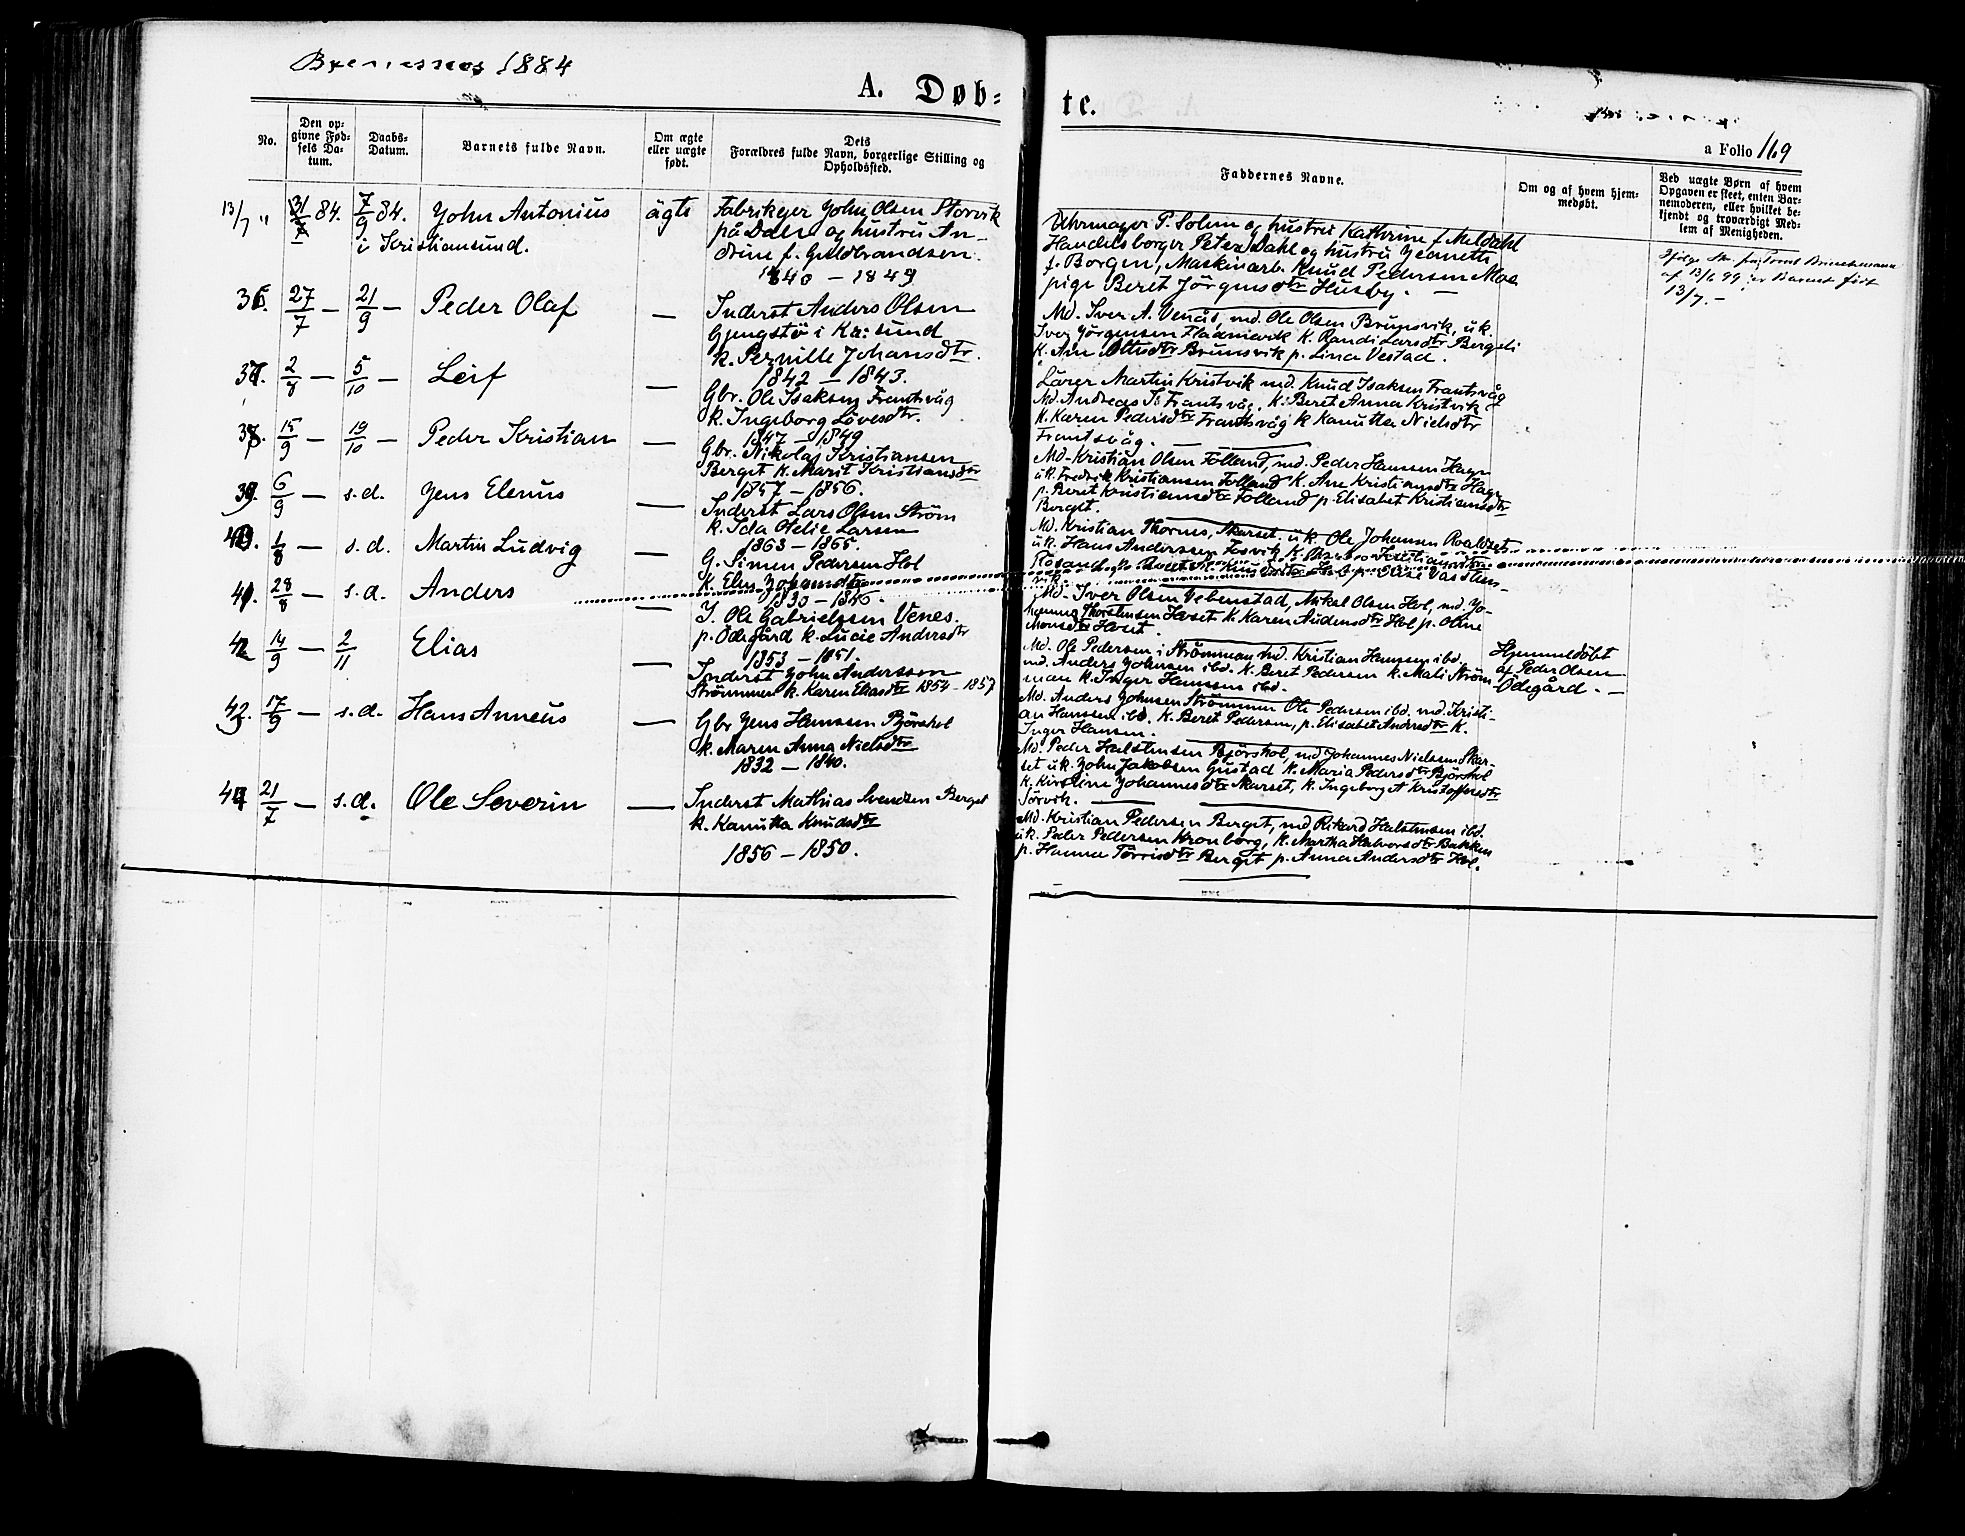 Bremsnes 1884
A. Døb=
te.
a Folio 169
No.
Den op=
givne Fød=
sels Da=
tum.
Daabs=
Datum.
Barnets fulde Navn.
Om ægte
eller uægte
født.
Dets
Forældres fulde Navn, borgerlige Stilling og
Opholdssted.
Faddernes Navne.
Om og af hvem hjem=
medøbt.
Ved uægte Børn af hvem
Opgaven er skeet, enten Bar=
nemoderen, eller hvilket be=
kjendt og troværdigt Med=
lem af Menigheden.
13/7 " 84. 7/9 84. John Antonius ägte Fabrikejer John Olsen Storvik
i Kristiansund. på Dale og hustru An-
drine f. Guldbrandsen.
1840 - 1849
Uhrmager P. Solem og hustru Kathrine f. Meldahl
Handelsborger Peter Dahl og hustru Jeanette
f. Borgen, Maskinarb. Knud Pedersen Moe
pige Beret Jörgensdtr Husby. —
af 13/6 99 er Barnet født
13/7. —
36. 27/7 — 21/9 — Peder Olaf — Inderst Anders Olsen
Gjengstö i Kr:sund
k. Pernille Johansdtr.
1842 — 1843.
Md. Iver A. Venås, md. Ole Olsen Brunsvik, u.k.
Iver Jörgensen Fladmark k. Randi Larsdtr Bergeli
k. Ane Brunsvik p. Lina Vestad.
37. 2/8 — 5/10 — Leif — Gbr. Ole Isaksen Frantsvåg
k. Ingeborg Lövesdtr.
1847 — 1849
Lärer Martin Kristvik md. Knud Isaksen Frantsvåg
Md. Andreas Frantsvåg, k. Beret Anna Kristvik
k. Karen Pedersdtr Frantsvåg k Kanutta Nielsdtr
Frantsvåg. —
38. 15/9 — 19/10 — Peder Kristian — Gbr. Nikolai Kristiansen
Berget k. Marit Kristiansdtr
1857 — 1856.
Md. Kristian Olsen Folland, md. Peder Hansen Hagn
u.k. Fredrik Kristiansen Folland k. Ane Kristiansdtr Hagn
p. Beret Kristiansdtr Folland p. Elisabet Kristiansdtr
Berget.
39. 6/9 — s.d. Jens Elenus — Inderst Lars Olsen Ström
k. Ida Otelie Larsen
1863 — 1865.
Md. Kristian Thorns, Skarset. u.k. Ole Johansen Roaldset
u.k. Hans Andersen Fosvik k.
40. 1/8 — s.d. Martin Ludvig — G. Simen Pedersen Hol
k. Elen Johansdtr
41. 28/8 — s.d. Anders — I. Ole Gabrielssen Venes.
p. Ödegård k. Lucie Andersdtr
1853 — 1851.
Md. Iver Olsen Vebenstad, Mikal Olsen Hol, md. Jo-
Hoset k. Karen Audensdtr Hol p. Oline
Monsdtr Hoset.
42 14/9 — 2/11 Elias — Inderst John Anderssen
Strömmen k. Karen Eliasdtr 1854 - 1857
Md. Ole Pedersen i Strömmen md. Kristian Hanssen ibd.
md. Anders Johnsen ibd. k. Beret Pedersen k. Mali Ström-
men k. Inger Hanssen ibd.
Hjemmedöbt
af Peder Olsen
Ödegård. —
Md. Anders Johnsen Strömmen Ole Pedersen ibd. md. Kristi-
an Hanssen ibd. k. Beret Pedersen, p. Elisabet Andersdtr k.
Inger Hansen.
43. 17/9 — s.d. Hans Anneus — Gbr Jens Hanssen Björshol
k. Maren Anna Nielsdtr
1832 — 1840.
Md. Peder Halstensen Björshol, md Johannes Nielsen Skar-
set u.k. John Jakobsen Gustad k. Maria Pedersdtr Björshol
k. Kiroline Johannesdtr Skarset, k. Ingeborg A Kristoffersdtr
Sörvik. —
44 21/7 — s.d. Ole Severin — Inderst Mathias Svendsen Berget
k. Kanutta Knudsdtr
1856 — 1850.
Md. Kristian Pedersen Berget, md Rikard Halstensen ibd.
u.k. Peder Pedersen Kronborg, k. Martha Halvorsdtr Bakken
p. Hanna Törrisdtr Berget p. Anna Andersdtr Hol.